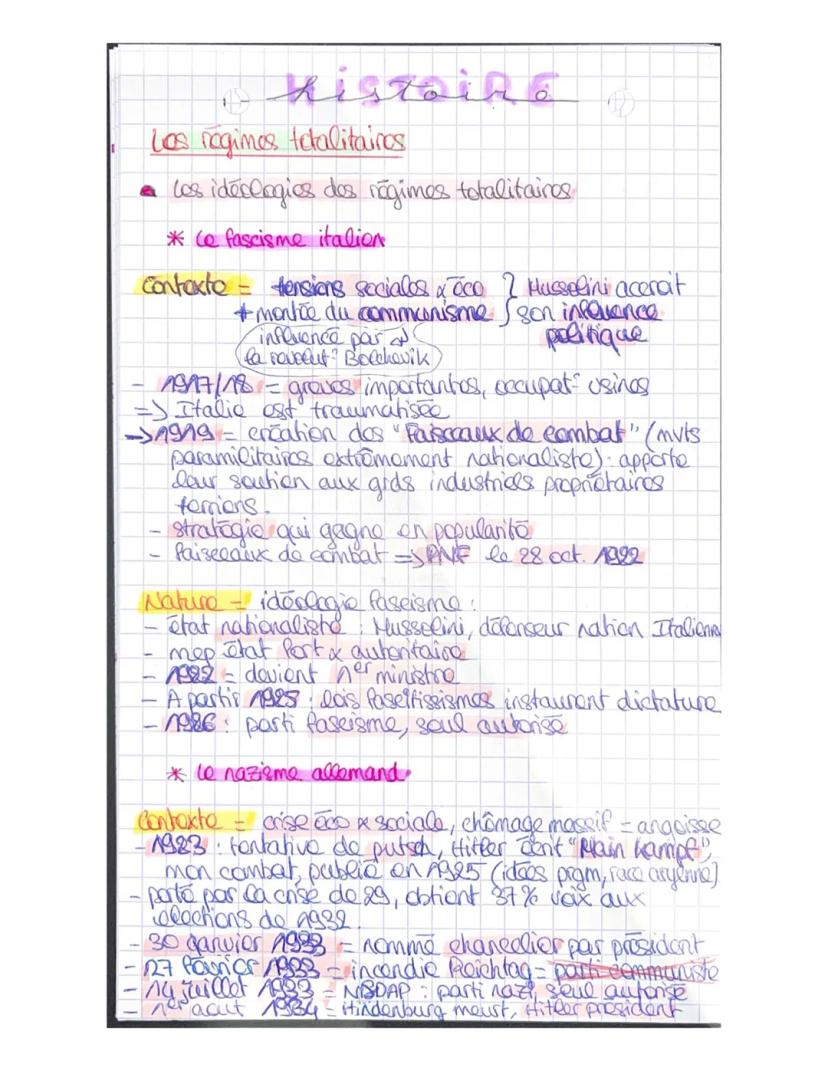 histoire
Les régimes totalitaires
Les idéologies des régimes totalitaires
* Le fascisme italien
Contexte = tensions sociales & éco } Mussolini accroit
+ montée du communisme } son influence
influencé par politique
la révolut° Bolchévik
- 1917/18 = grèves importantes, occupat° usines
=> Italie est traumatisée
-> 1919 = création des "Faisceaux de combat" (mvts
paramilitaires extrêmement nationaliste) : apporte
leur soutien aux grds industriels propriétaires
terriens.
- stratégie qui gagne en popularité
- Faisceaux de combat => PNF le 28 oct. 1922
Nature = idéologie fascisme :
- état nationaliste : Mussolini, défenseur nation Italienne
- mep État fort & autoritaire
- 1922 = devient 1er ministre
- A partir 1925 : lois fascitissismes instaurent dictature
- 1926 : parti fascisme, seul autorisé
* Le nazisme allemand
Contexte = crise éco & sociale, chômage massif = angoisse
- 1923 : tentative de putsch, Hitler écrit "Main Kampf",
mon combat, publié en 1925 (idées prgm, race aryenne)
- porté par la crise de 29, obtient 37% voix aux
élections de 1932.
- 30 janvier 1933 = nommé chancelier par président
- 27 Février 1933 = incendie Reichtag = parti communiste
- 14 juillet 1933 = NSDAP : parti nazi, seul autorisé
- 1er aout 1934 = Hindenburg meurt, Hitler président